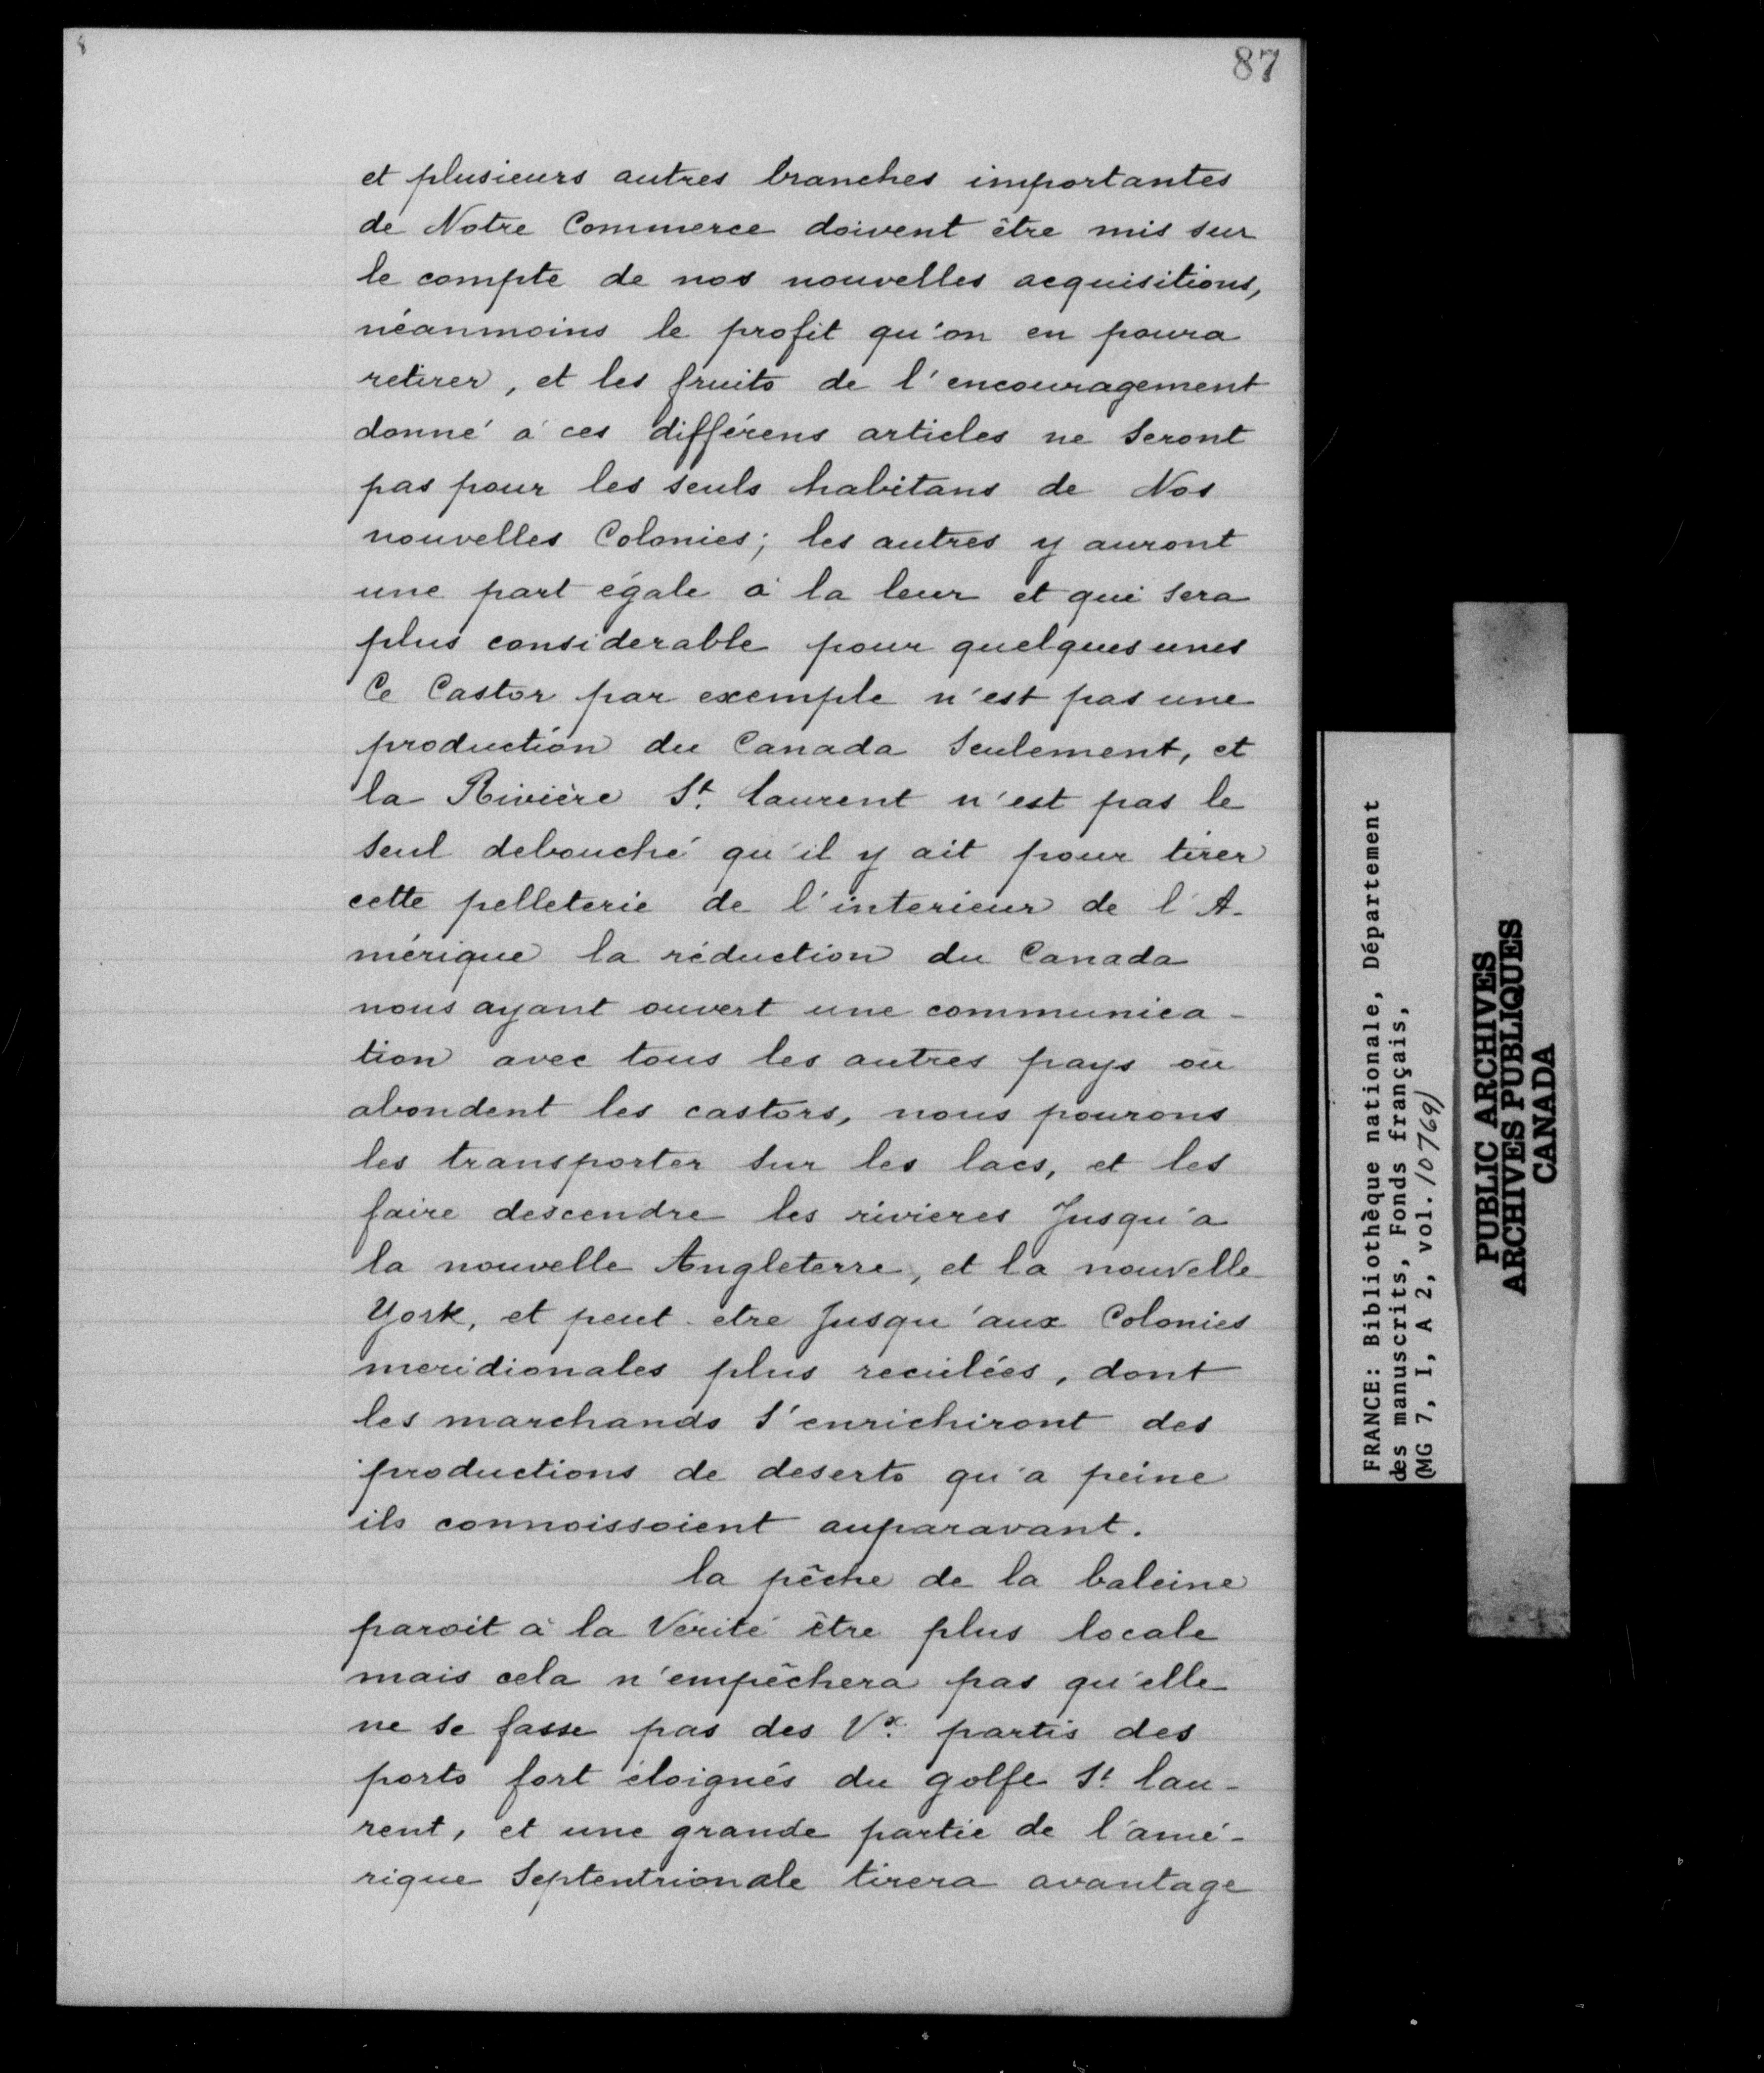 87
et plusieurs autres branches importantes
de Notre Commerce doivent être mis sur
le compte de nos nouvelles acquisitions,
néanmoins le profit qu'on en poura
retirer, et les fruits de l'encouragement
donné à ces différens articles ne seront
pas pour les seuls habitans de Nos
nouvelles Colonies; les autres y auront
une part égale à la leur et qui sera
plus considerable pour quelques unes
Ce Castor par exemple n'est pas une
production du Canada seulement, et
la Rivière St. laurent n'est pas le
seul debouché qu'il y ait pour tirer
cette pelleterie de l'interieur de l'A-
mérique la réduction du Canada
nous ayant ouvert une communica-
tion avec tous les autres pays où
abondent les castors, nous pourons
les transporter sur les lacs, et les
faire descendre les rivieres Jusqu'a
la nouvelle Angleterre, et la nouvelle
York, et peut-etre Jusqu'aux Colonies
meridionales plus reculées, dont
les marchands s'enrichiront des
productions de deserts qu'a peine
ils connoissoient auparavant.
la pêche de la baleine
paroit à la Vérité être plus locale
mais cela n'empêchera pas qu'elle
ne se fasse pas des Vx. partis des
ports fort éloignés du golfe St. lau-
rent, et une grande partie de l'amé-
rique Septentrionale tirera avantage
FRANCE: Bibliothèque nationale, Département
des manuscrits, Fonds français,
(MG 7, I, A 2, vol. 10769)
PUBLIC ARCHIVES
ARCHIVES PUBLIQUES
CANADA